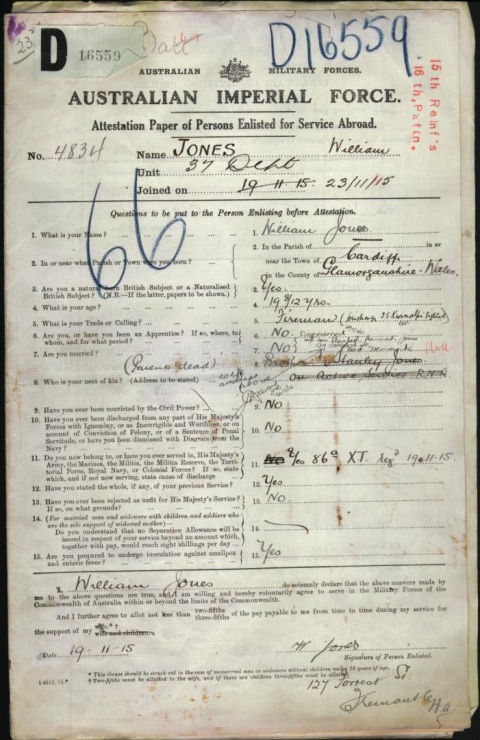 D 16559
D16559
AUSTRALIAN MILITARY FORCES.
AUSTRALIAN IMPERIAL FORCE.
15th Reinf's
16th Battn.
Attestation Paper of Persons Enlisted for Service Abroad.
No. 4834 Name JONES William
Unit 37 Dept
Joined on 19-11-15. 23/11/15
66
Questions to be put to the Person Enlisting before Attestation.
1. What is your Name? 1. William Jones
2. In or near what Parish or Town were you born? 2. In the Parish of in or
near the Town of Cardiff
in the County of Glamorganshire Wales
3. Are you a natural born British Subject or a Naturalised
British Subject? (N.B.—If the latter, papers to be shown.) 3. Yes
4. What is your age? 4. 19 9/12 yrs.
5. What is your Trade or Calling? 5. Fireman
6. Are you, or have you been an Apprentice? If so, where, to
whom, and for what period? 6. No
7. Are you married? 7. No
(Parents dead)
8. Who is your next of kin? (Address to be stated) 8. Brother Stanley Jones
on Active Service R.N.R.
9. Have you ever been convicted by the Civil Power? 9. No
10. Have you ever been discharged from any part of His Majesty's
Forces with Ignominy, or as Incorrigible and Worthless, or on
account of Conviction of Felony, or of a Sentence of Penal
Servitude, or have you been dismissed with Disgrace from the
Navy? 10. No
11. Do you now belong to, or have you ever served in, His Majesty's
Army, the Marines, the Militia, the Militia Reserve, the Terri-
torial Force, Royal Navy, or Colonial Forces? If so, state
which, and if not now serving, state cause of discharge 11. No Yes 86a XT. 19-11-15
12. Have you stated the whole, if any, of your previous Service? 12. Yes
13. Have you ever been rejected as unfit for His Majesty's Service?
If so, on what grounds? 13. No
14. (For married men and widowers with children and soldiers who
are the sole support of widowed mother)—
Do you understand that no Separation Allowance will be
issued in respect of your service beyond an amount which,
together with pay, would reach eight shillings per day 14.
15. Are you prepared to undergo inoculation against smallpox
and enteric fever? 15. Yes
I, William Jones do solemnly declare that the above answers made by
me to the above questions are true, and I am willing and hereby voluntarily agree to serve in the Military Forces of the
Commonwealth of Australia within or beyond the limits of the Commonwealth.
And I further agree to allot not less than two-fifths three-fifths of the pay payable to me from time to time during my service for
the support of my wife wife and children.
Date 19-11-15
W Jones
Signature of Person Enlisted.
* This clause should be struck out in the case of unmarried men or widowers without children under 18 years of age.
† Two-fifths must be allotted to the wife, and if there are children three-fifths must be allotted
127 Forrest St.
Fremantle W.A.